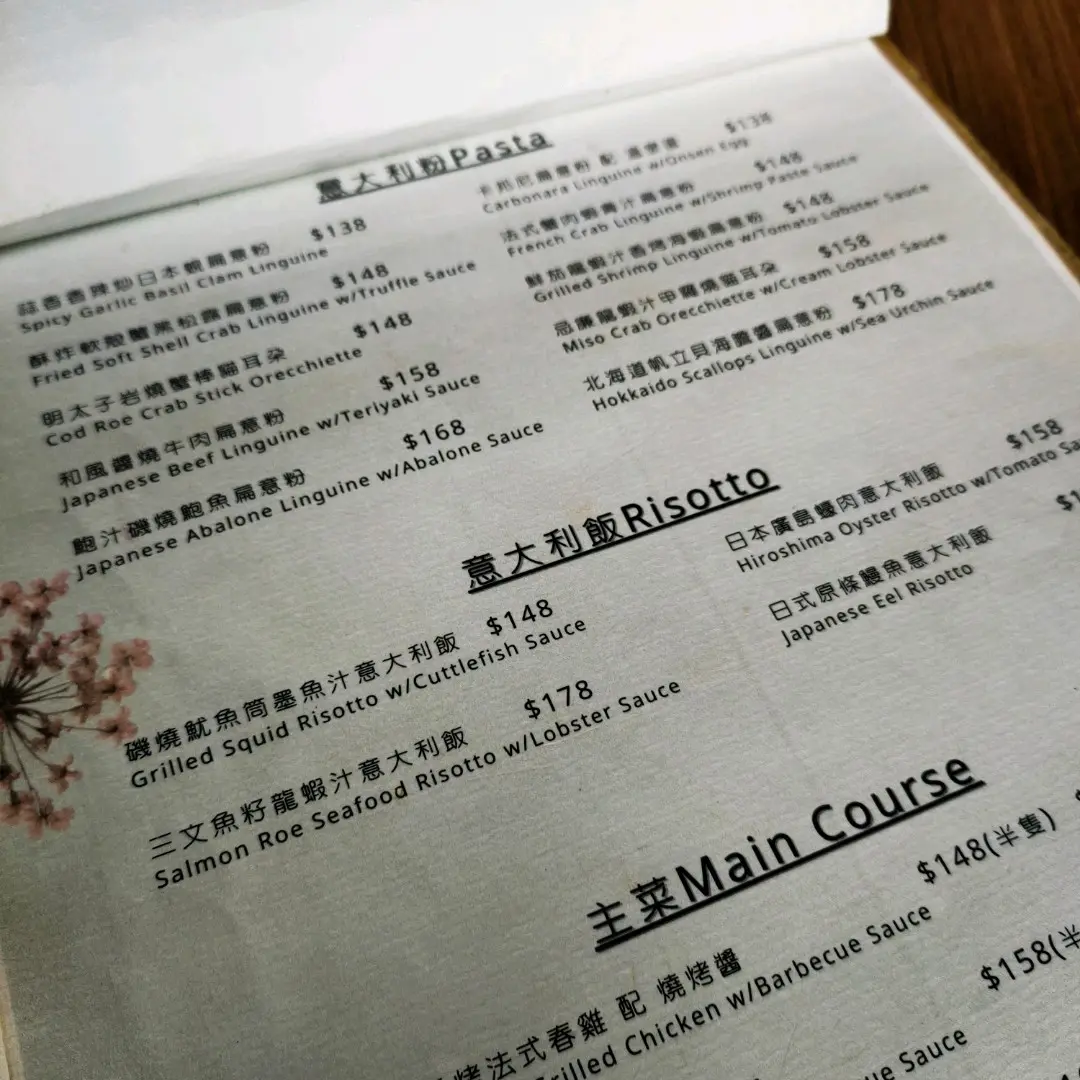 意大利粉Pasta
蒜香香辣炒日本蜆扁意粉 $138
Spicy Garlic Basil Clam Linguine
酥炸軟殼蟹黑松露扁意粉 $148
Fried Soft Shell Crab Linguine w/Truffle Sauce
明太子岩燒蟹棒貓耳朵 $148
Cod Roe Crab Stick Orecchiette
和風醬燒牛肉扁意粉 $158
Japanese Beef Linguine w/Teriyaki Sauce
鮑汁磯燒鮑魚扁意粉 $168
Japanese Abalone Linguine w/Abalone Sauce
卡邦尼扁意粉 配 溫泉蛋 $138
Carbonara Linguine w/Onsen Egg
法式蟹肉蝦膏汁扁意粉 $148
French Crab Linguine w/Shrimp Paste Sauce
鮮茄龍蝦汁香烤海蝦扁意粉 $148
Grilled Shrimp Linguine w/Tomato Lobster Sauce
忌廉龍蝦汁甲羅燒貓耳朵 $158
Miso Crab Orecchiette w/Cream Lobster Sauce
北海道帆立貝海膽醬扁意粉 $178
Hokkaido Scallops Linguine w/Sea Urchin Sauce
意大利飯Risotto
磯燒魷魚筒墨魚汁意大利飯 $148
Grilled Squid Risotto w/Cuttlefish Sauce
三文魚籽龍蝦汁意大利飯 $178
Salmon Roe Seafood Risotto w/Lobster Sauce
日本廣島蠔肉意大利飯 $158
Hiroshima Oyster Risotto w/Tomato
日式原條鰻魚意大利飯
Japanese Eel Risotto
主菜Main Course
烤法式春雞 配 燒烤醬 $148(半隻)
Chicken w/Barbecue Sauce
$158(半
Sauce